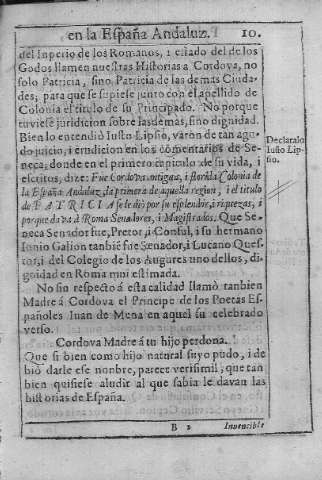 en la España Andaluz. 10.
del Inperio de los Romanos, i estado del de los
Godos llamen nuestras Historias a Cordova, no
solo Patricia, sino Patricia de las demas Ciuda-
des; para que se supiese junto con el apellido de
Colonia el titulo de su Principado. No porque
tuviese juridicion sobre las demas, sino dignidad.
Bien lo entendio Iusto Lipsio, varon de tan agu-
do juicio, i erudicion en los comentarios de Se-
neca; donde en el primero capitulo de su vida, i
escritos, dize: Fue Cordova antigua, i florida Colonia de
la España Andaluz, la primera de aquella region, i el titulo
de PATRICIA se le dio por su esplendor, i riquezas, i
porque dava à Roma Senadores, i Magistrados. Que Se-
neca Senador fue, Pretor, i Consul, i su hermano
Iunio Galion tanbiē fue Senador, i Lucano Ques-
tor, i del Colegio de los Augures uno dellos, di-
gnidad en Roma mui estimada.
Declaralo
Iusto Lip-
sio.
No sin respecto à esta calidad llamò tanbien
Madre à Cordova el Principe de los Poetas Es-
pañoles Iuan de Mena en aquel su celebrado
verso.
Cordova Madre à tu hijo perdona.
Que si bien como hijo natural suyo pudo, i de
biò darle ese nonbre, parece verisimil, que tan
bien quisiese aludir al que sabia le davan las
historias de España.
B 2 Invencible